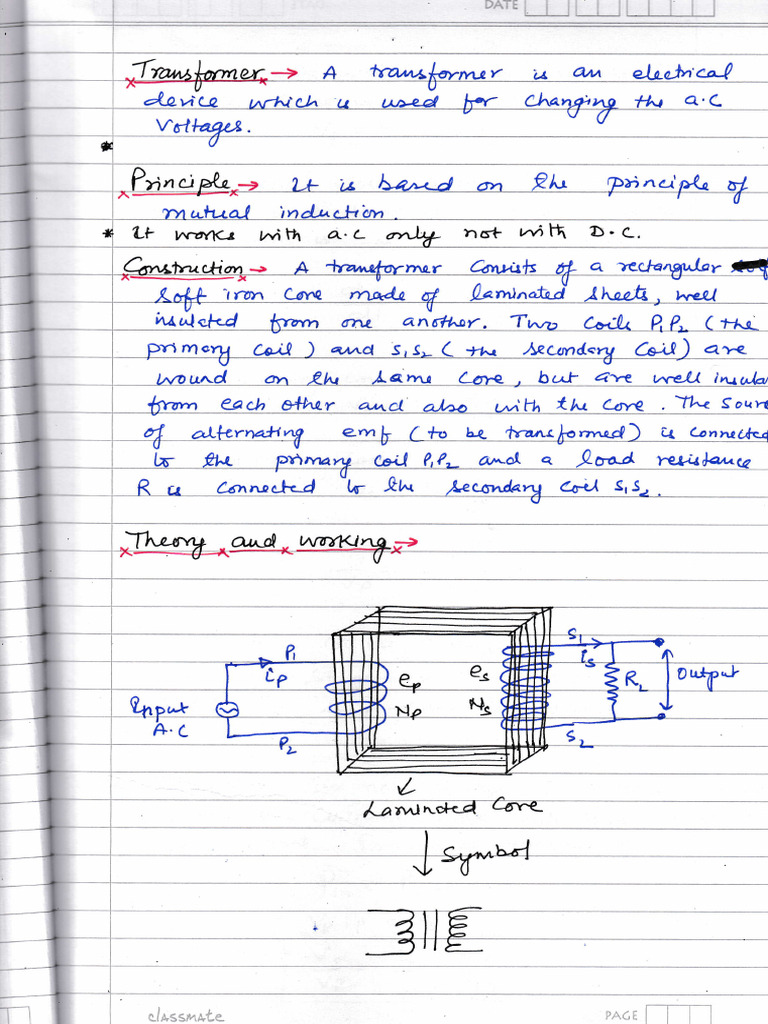 DATE
Transformer → A transformer is an electrical
device which is used for changing the a.c
Voltages.
*
Principle → It is based on the principle of
mutual induction.
* It works with a.c only not with D.C.
Construction → A transformer consists of a rectangular
Soft iron core made of laminated sheets, well
insulated from one another. Two coils P1P2 (the
primary coil) and S1S2 (the secondary coil) are
wound on the same core, but are well insula
from each other and also with the core. The Sour
of alternating emf (to be transformed) is connected
to the primary coil P1P2 and a load resistance
R is connected to the secondary coil S1S2.
Theory and working →
P1
ip
Input
A.C
P2
ep
Np
es
Ns
S1
is
RL
Output
S2
Laminated Core
Symbol
classmate
PAGE